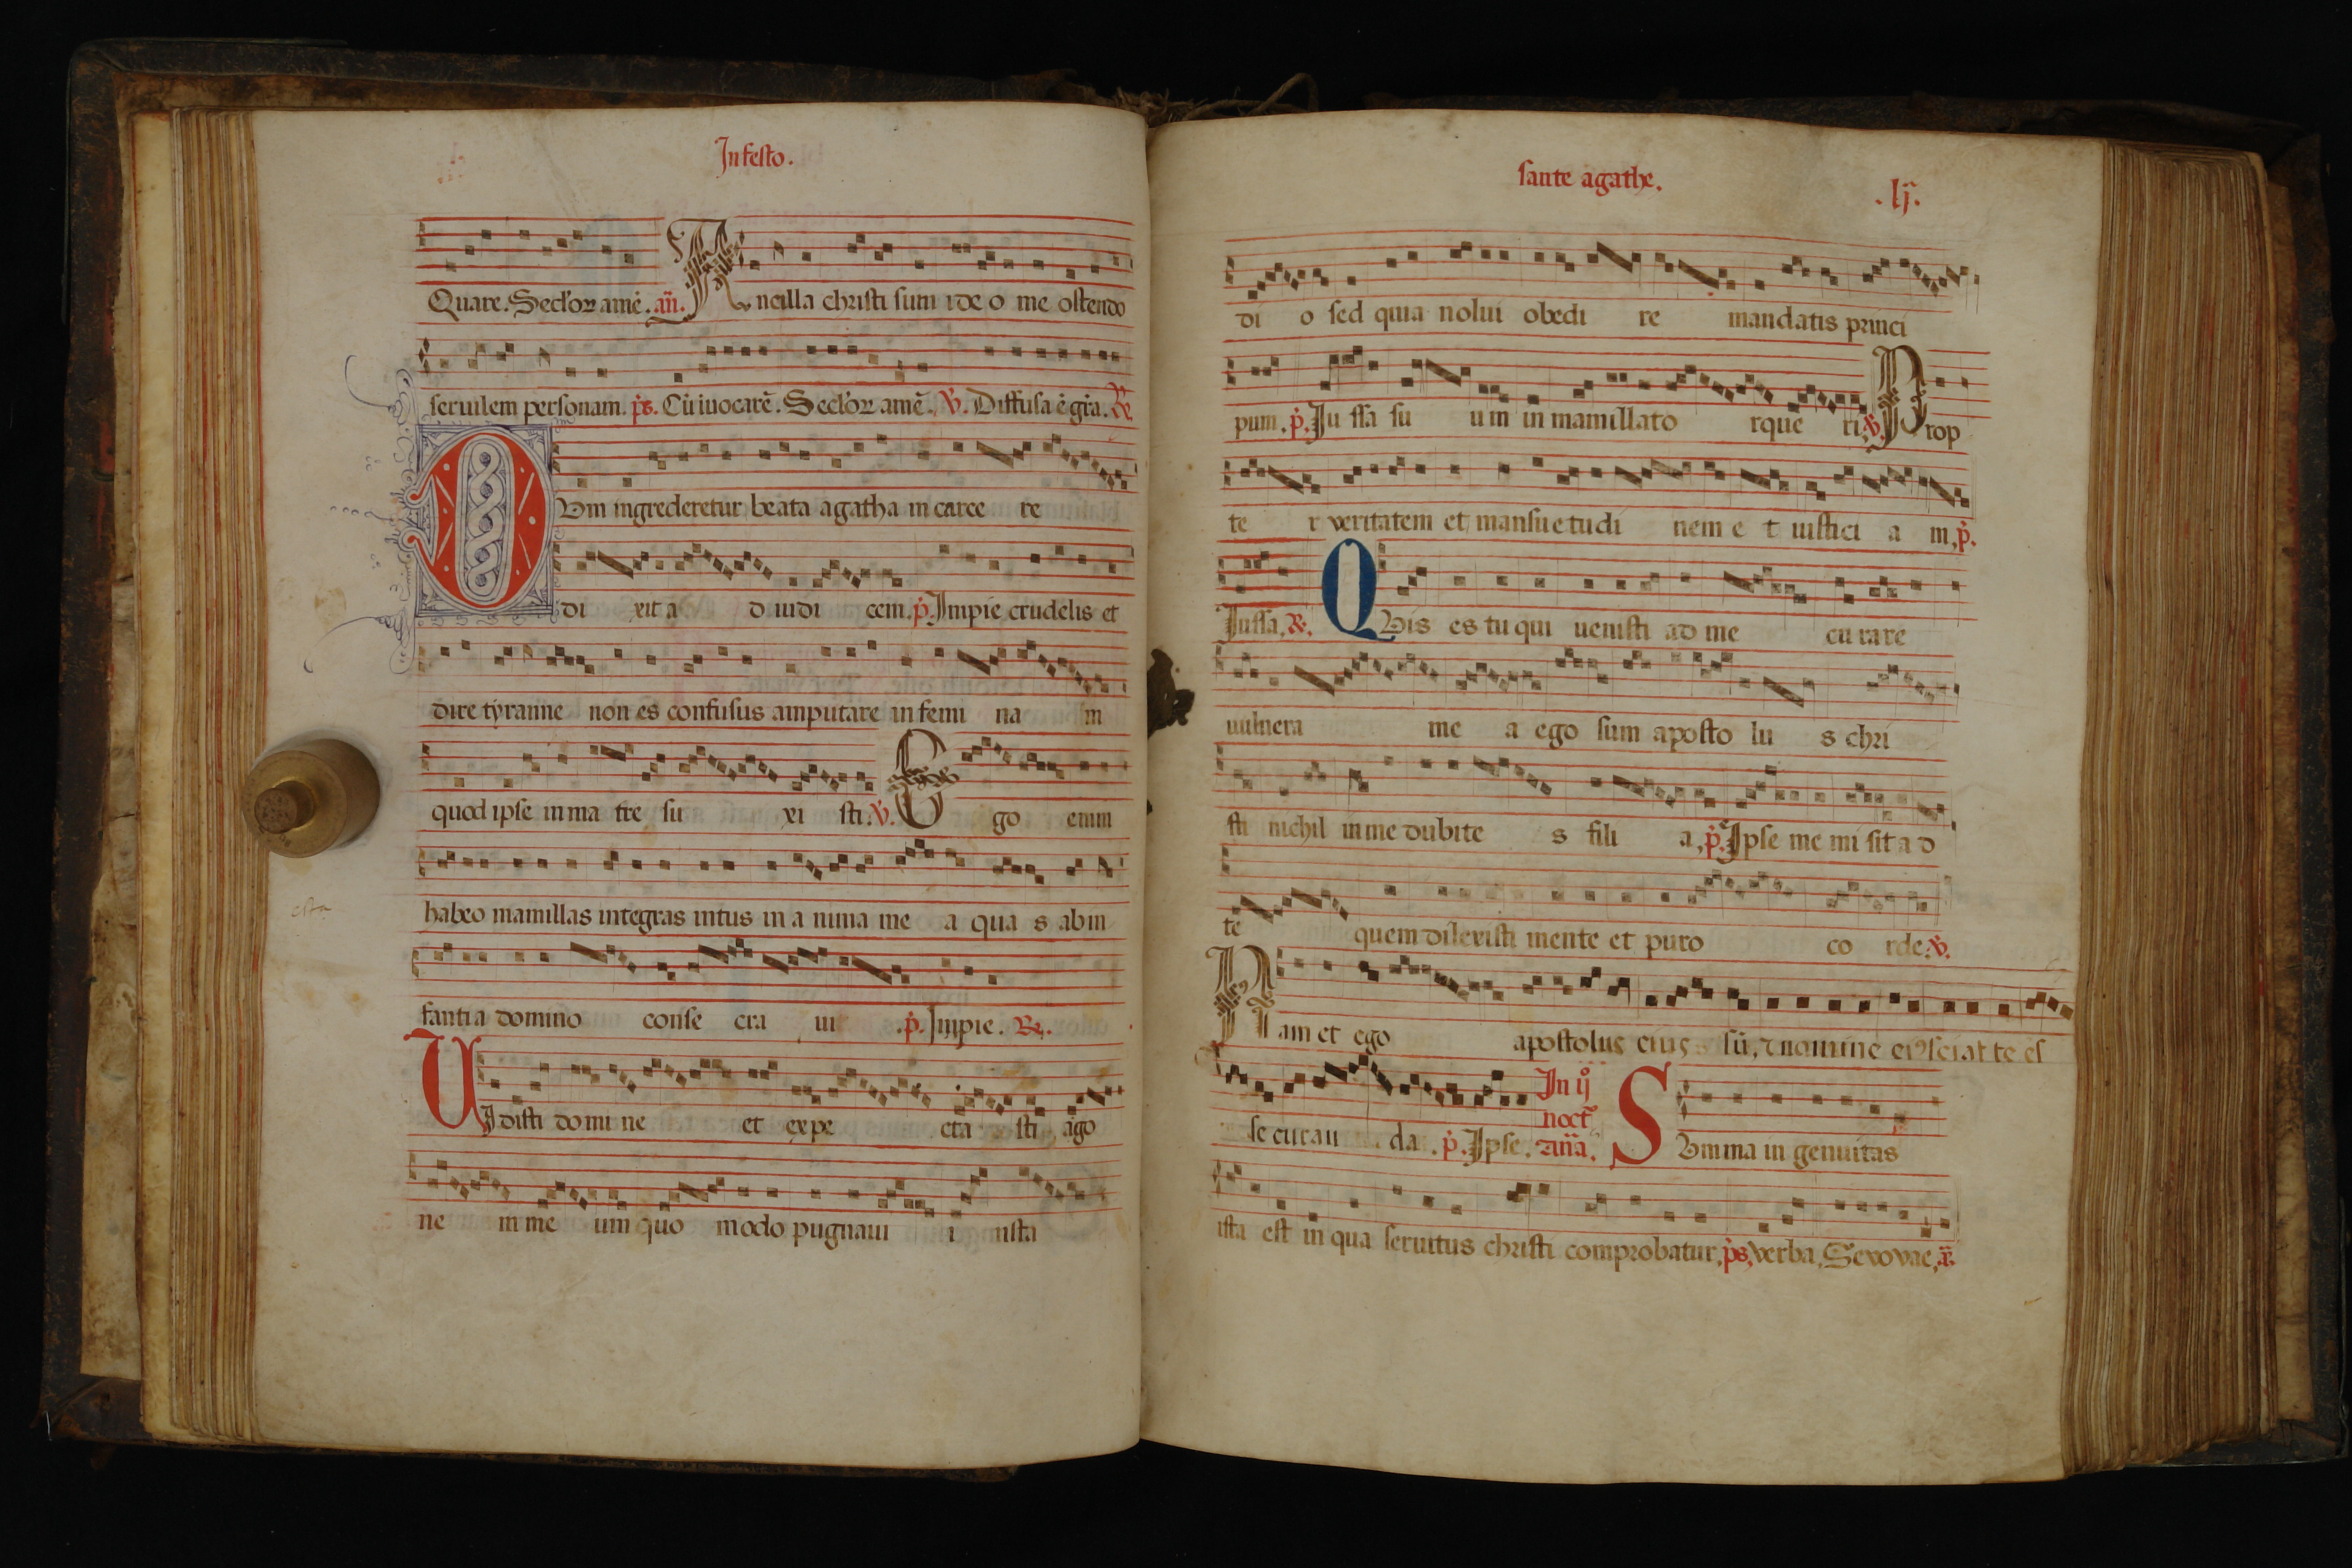 In festo.
Quare. Seclor amē. añ. Ancilla christi sum ideo me ostendo
seruilem personam. ps. Cū iuocarē. Seclor amē. v. Diffusa ē gra. R
Dum ingrederetur beata agatha in carce re
di xit a d iudi cem. p. Impie crudelis et
dire tyranne non es confusus amputare in femi na m
quod ipse in ma tre su xi sti. v. Ego enim
habeo mamillas integras intus in a nima me a qua s ab in
fanti a domino conse cra ui .p. Impie. R.
Vidisti domi ne et expe cta sti ago
ne m me um quo modo pugnaui i nsta
sante agathe.
.lij.
di o sed quia nolui obedi re mandatis princi
pum. p. Ju ssa su um in mamillato rque ri. v. Prop
te r veritatem et mansuetudi nem e t iustici a m. p.
Jussa. R. Quis es tu qui uenisti ad me cu rare
uulnera me a ego sum aposto lu s chri
sti nichil in me dubite s fili a. p. Ipse me mi sit a d
te quem dilexisti mente et puro co rde. v.
Nam et ego apostolus eius sū, 7 nomine ei9 sciat te es
se curan da. p. Ipse. In ij noct añã. Summa in genuitas
ista est in qua seruitus christi comprobatur. ps. verba. Sevovae. R.